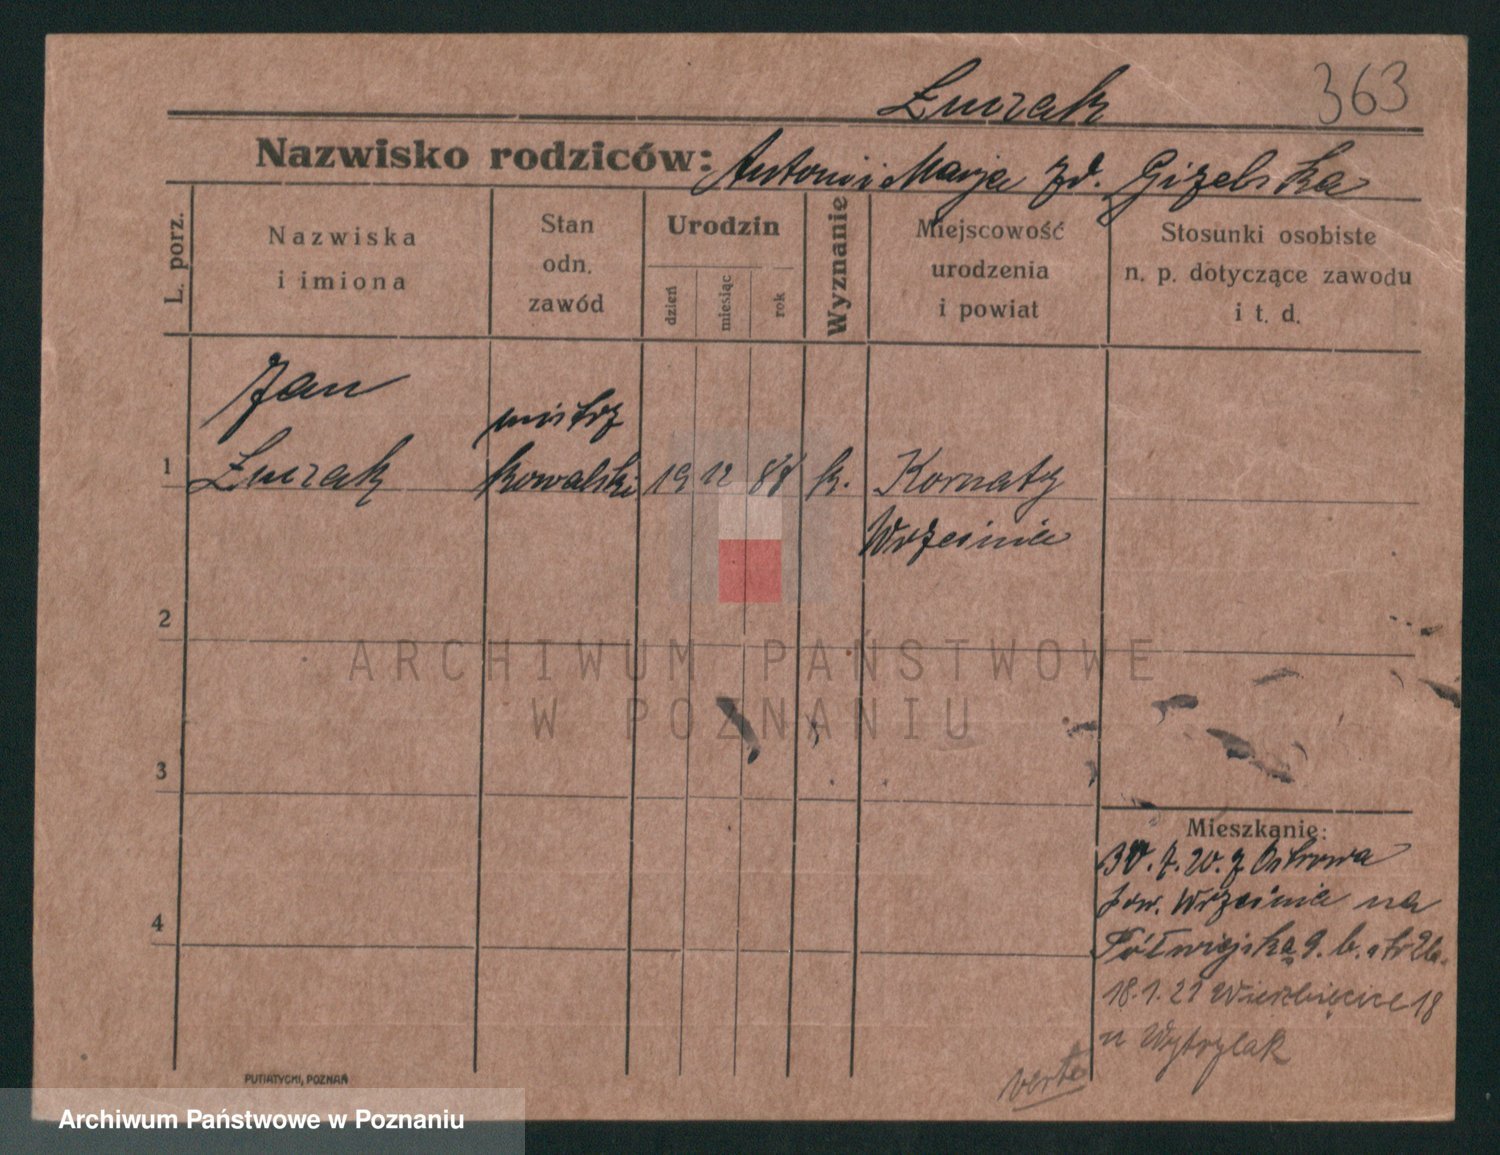 Łuczak 363
Nazwisko rodziców: Antoni i Marja zd. Gizelska
L. porz.
Nazwiska
i imiona
Stan
odn.
zawód
Urodzin
dzień
miesiąc
rok
Wyznanie
Miejscowość
urodzenia
i powiat
Stosunki osobiste
n. p. dotyczące zawodu
i t. d.
Jan
mistrz
1 Łuczak kowalski 19 12 88 k. Kornaty
Września
2
ARCHIWUM PAŃSTWOWE
W POZNANIU
3
Mieszkanie:
20. z Ostrowa
pow. Września na
4
Półwiejska 9. b.
18.1.21 Wierzbięcice 18
u Wytrylak
verte
PUTIATYCKI, POZNAŃ
Archiwum Państwowe w Poznaniu